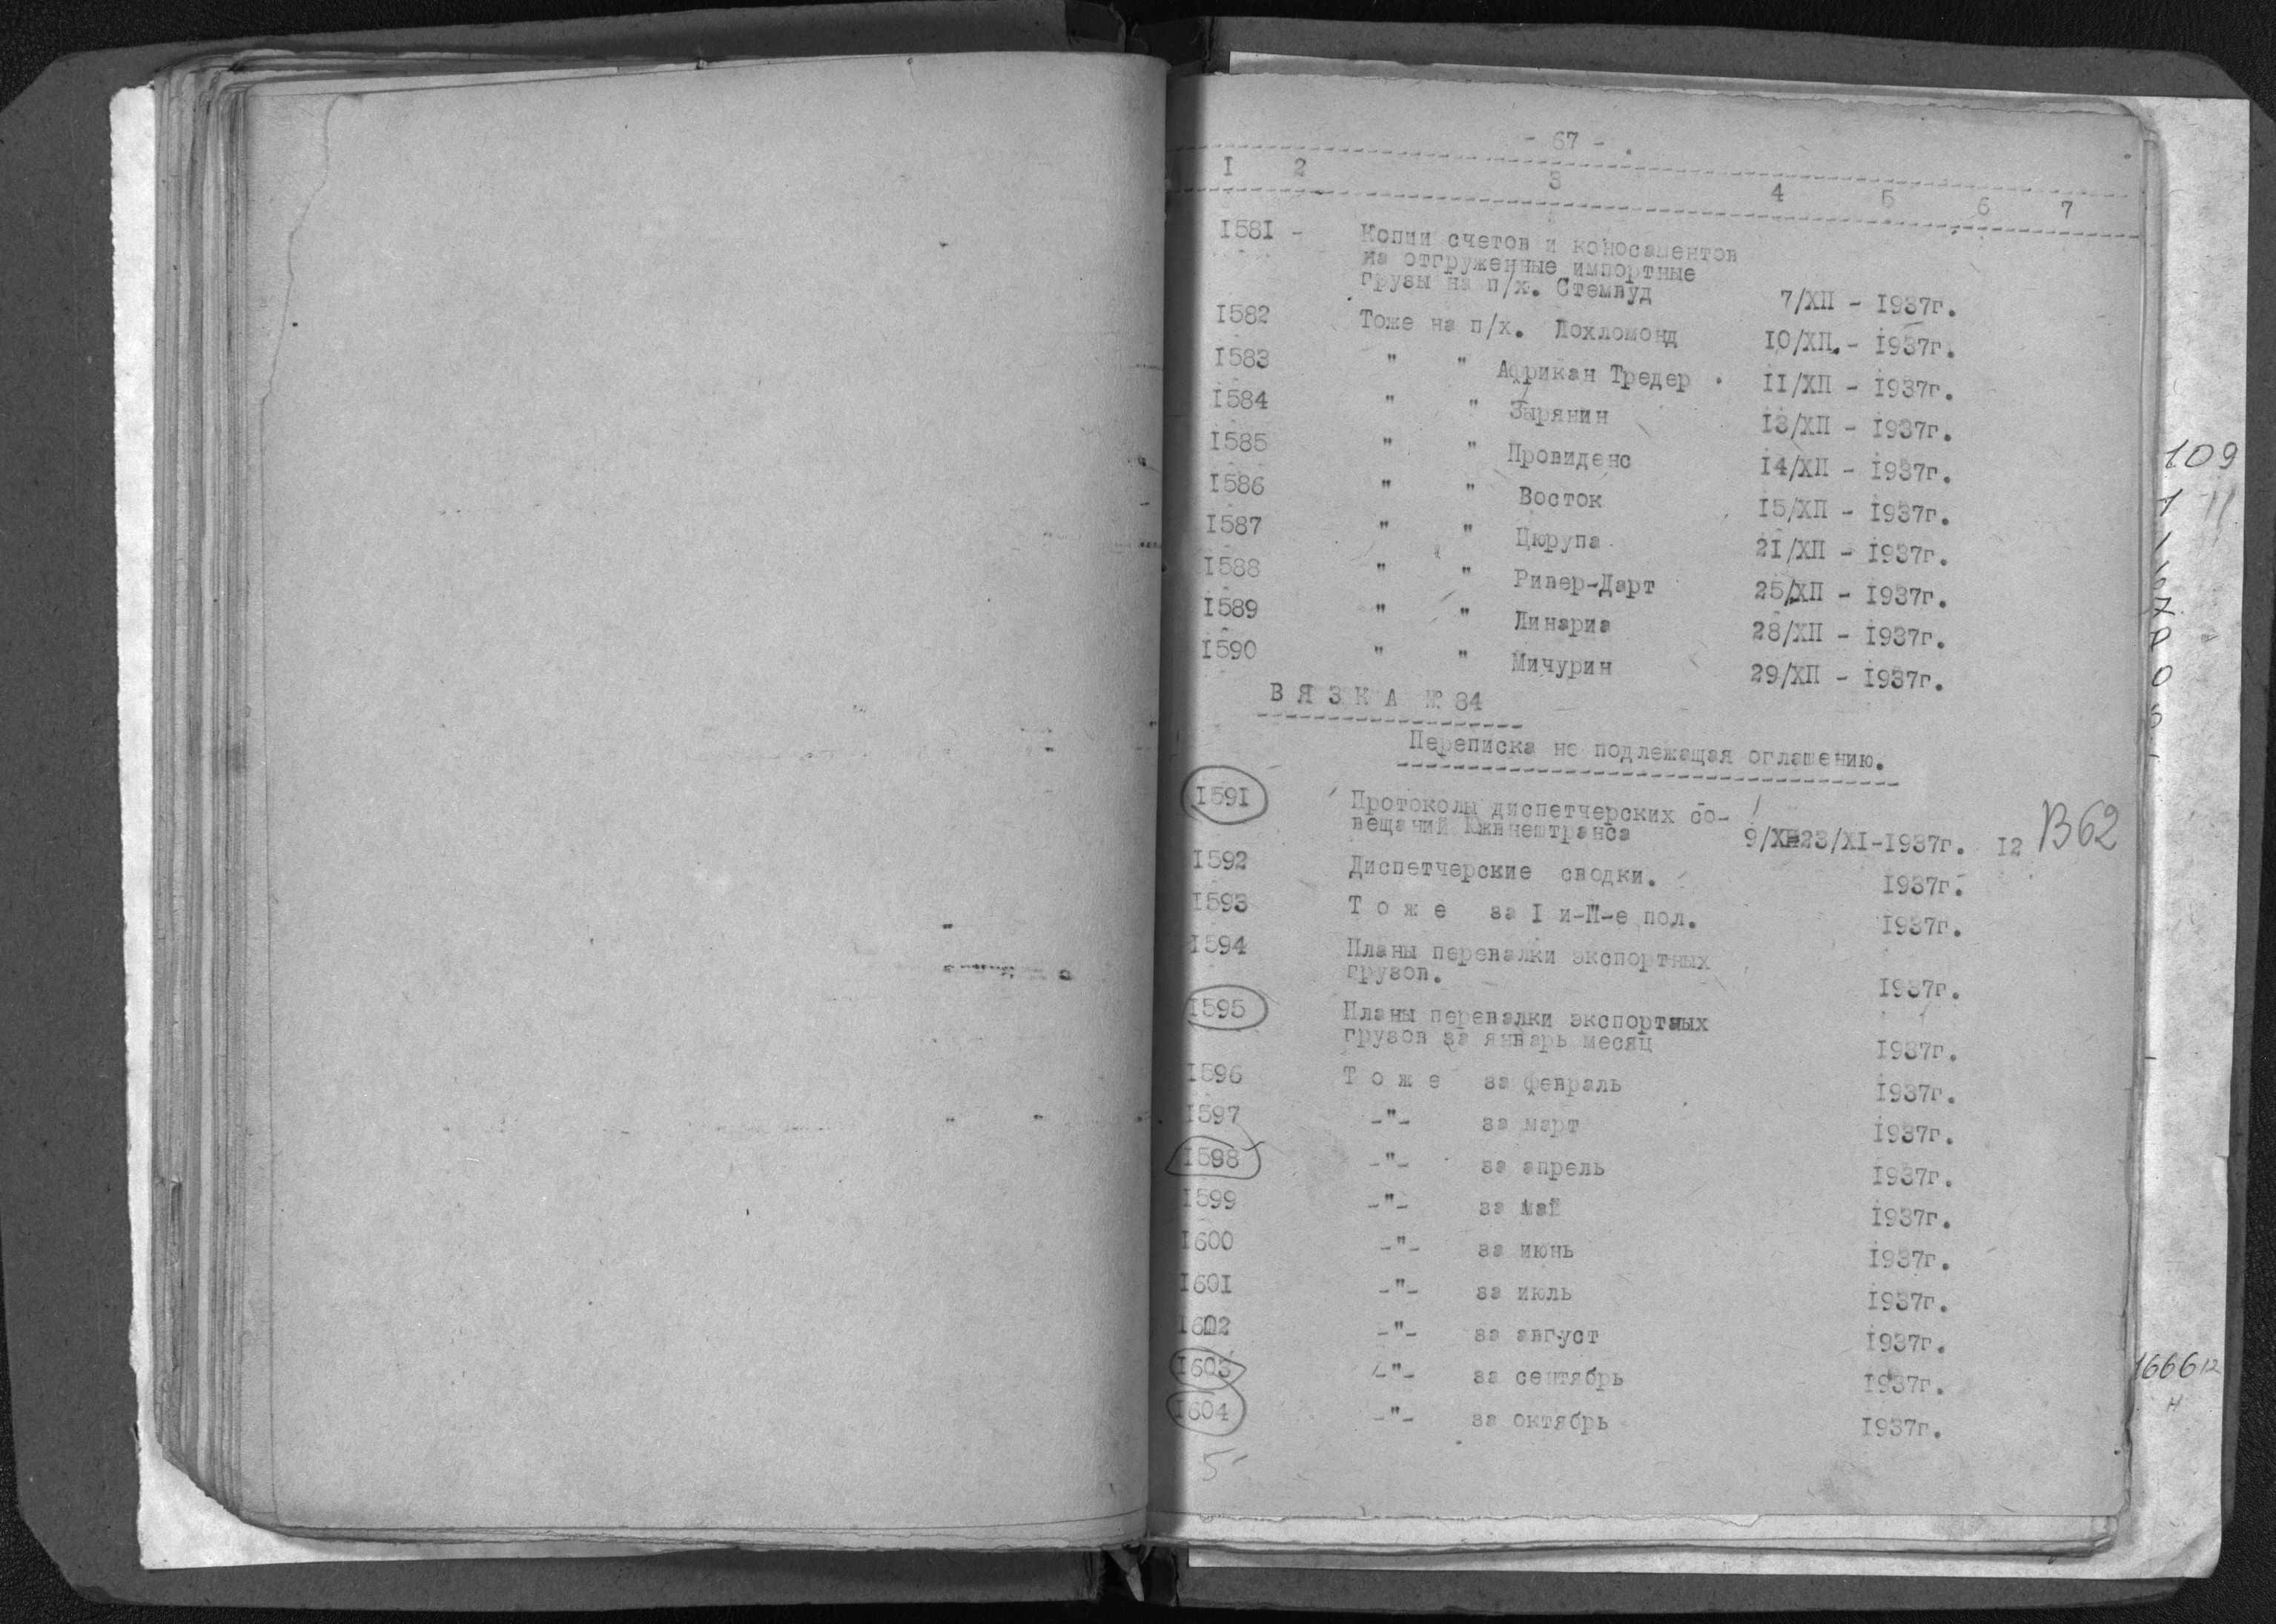 - 67 -
I 2 3 4 5 6 7
I58I - Копии счетов и коносаментов
на отгруженные импортные
грузы на п/х. Стемвуд 7/ХП - I937г.
I582 Тоже на п/х. Лохломонд IO/ХП. - I937г.
I583 " " Африкан Тредер . II/ХП - I937г.
I584 " " Зырянин I3/ХП - I937г.
I585 " " Провиденс I4/ХП - I937г.
I586 " " Восток I5/ХП - I937г.
I587 " " Цюрупа 2I/ХП - I937г.
I588 " " Ривер-Дарт 25/ХП - I937г.
I589 " " Линариа 28/ХП - I937г.
I590 " " Мичурин 29/ХП - I937г.
В Я З К А № 84
Переписка не подлежащая оглашению.
I59I Протоколы диспетчерских со-
вещаний Южвнештранса 9/ 23/XI-I937г. I2 В62
I592 Диспетчерские сводки. I937г.
I593 Т о ж е за I и-П-е пол. I937г.
I594 Планы перевалки экспортных
грузов. I937г.
I595 Планы перевалки экспортных
грузов за январь месяц I937г.
I596 Т о ж е за февраль I937г.
I597 -"- за март I937г.
I598 -"- за апрель I937г.
I599 -"- за май I937г.
I600 -"- за июнь I937г.
I60I -"- за июль I937г.
I602 -"- за август I937г.
I603 -"- за сентябрь I937г.
I604 -"- за октябрь I937г.
5
109
1666